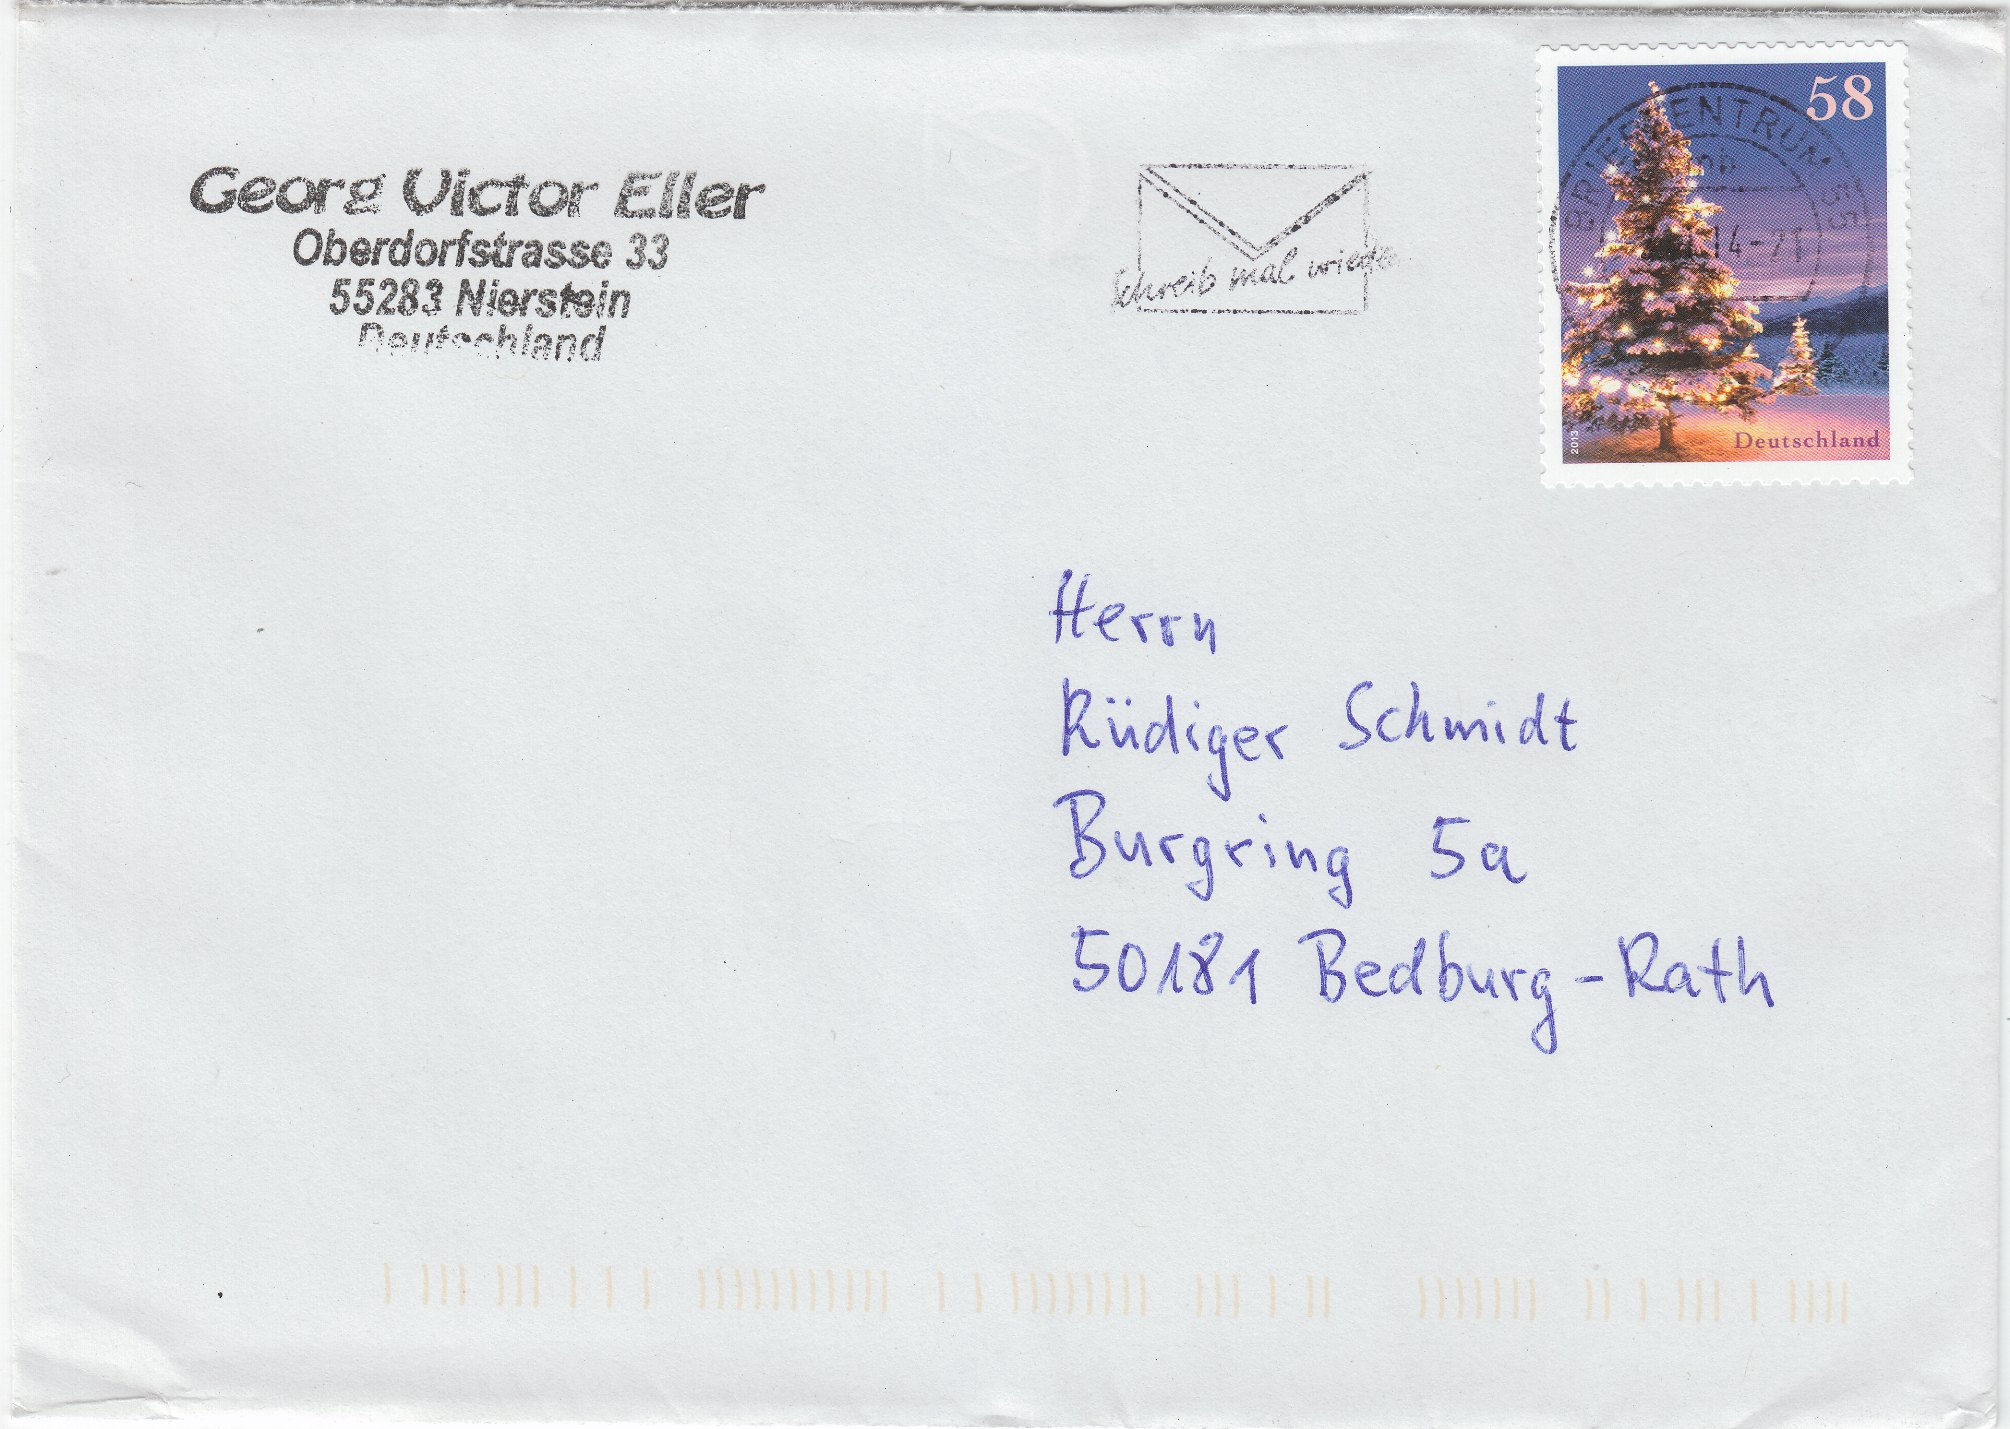 Georg Victor Eller
Oberdorfstrasse 33
55283 Nierstein
Deutschland
Schreib mal wieder
58
BRIEFZENTRUM 55
14-21
2013
Deutschland
Herrn
Rüdiger Schmidt
Burgring 5a
50181 Bedburg-Rath